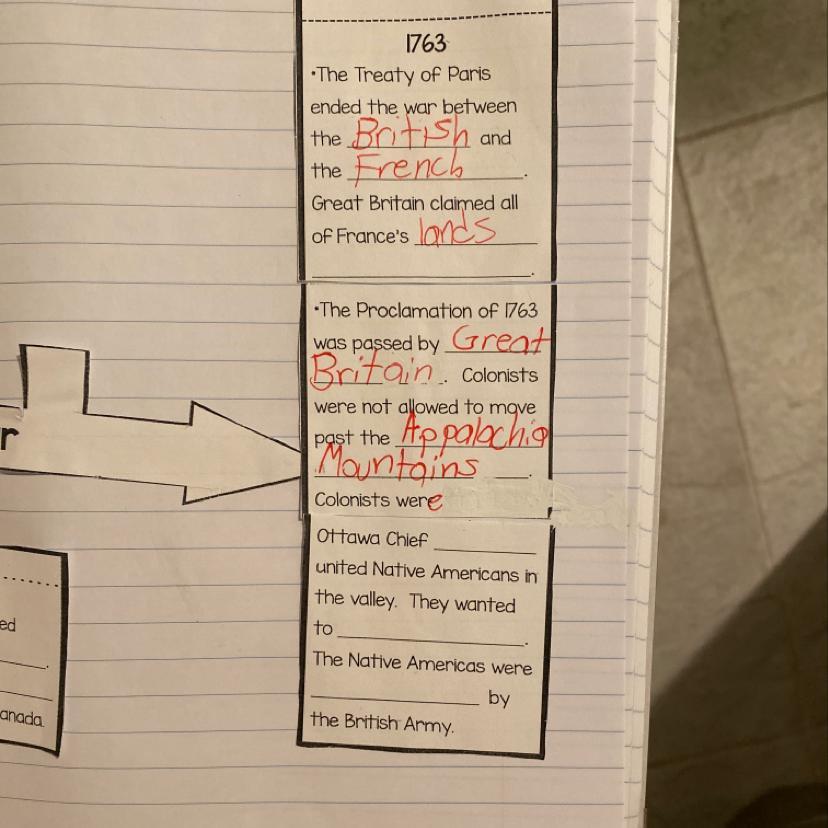 1763
•The Treaty of Paris
ended the war between
the British and
the French.
Great Britain claimed all
of France's lands
.
•The Proclamation of 1763
was passed by Great
Britain. Colonists
were not allowed to move
past the Appalachia
Mountains.
Colonists were
r
Ottawa Chief
united Native Americans in
the valley. They wanted
to .
The Native Americas were
by
the British Army.
ed
.
anada.